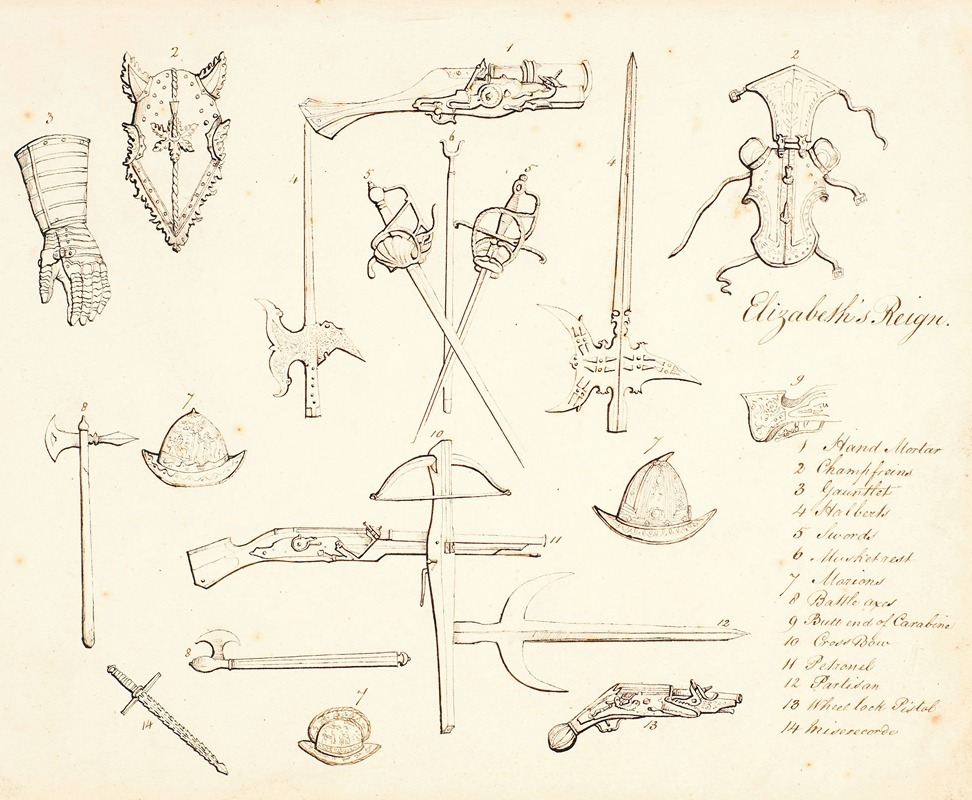 1
2
2
3
6
4
5
5
4
Elizabeth's Reign.
9
8
7
10
7
11
12
8
14
7
13
1 Hand Mortar
2 Champfreins
3 Gauntlet
4 Halberts
5 Swords
6 Musket rest
7 Morions
8 Battle axes
9 Butt end of Carabine
10 Cross Bow
11 Petronel
12 Partisan
13 Wheel lock Pistol
14 Miserecorde